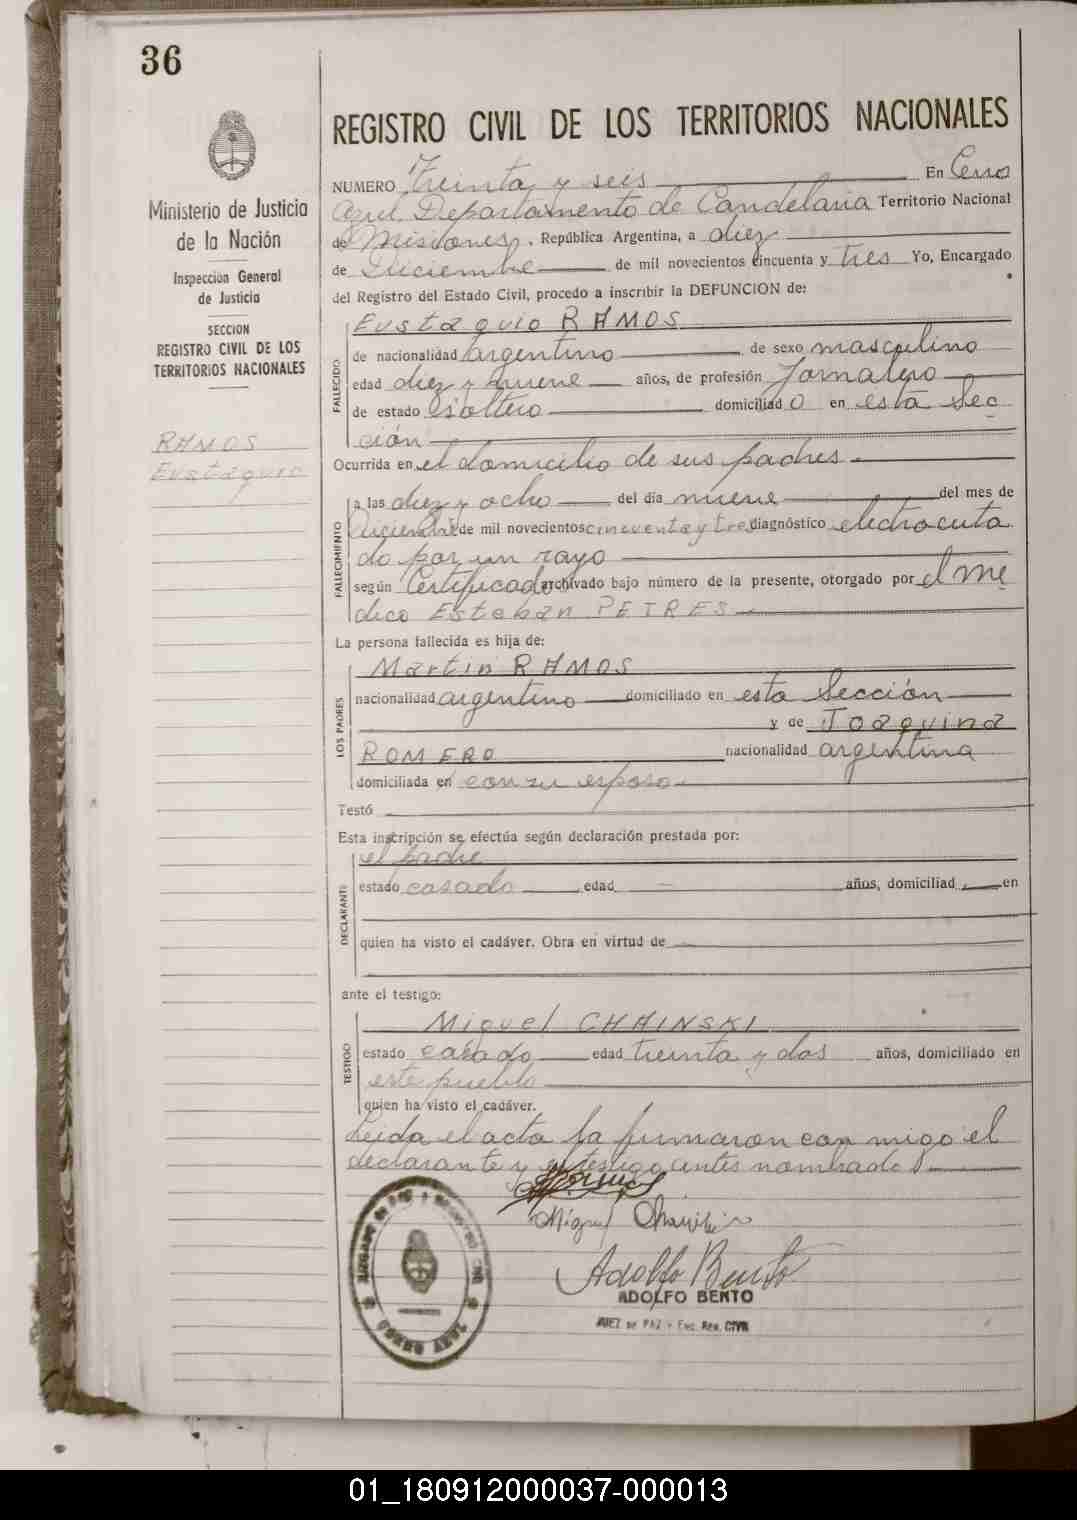 36
Ministerio de Justicia
de la Nación
Inspección General
de Justicia
SECCION
REGISTRO CIVIL DE LOS
TERRITORIOS NACIONALES
RAMOS
Eustaquio
REGISTRO CIVIL DE LOS TERRITORIOS NACIONALES
NUMERO Treinta y seis En Cerro
Azul Departamento de Candelaria Territorio Nacional
de Misiones, República Argentina, a diez
de Diciembre de mil novecientos cincuenta y tres Yo, Encargado
del Registro del Estado Civil, procedo a inscribir la DEFUNCION de:
FALLECIDO
Eustaquio RAMOS
de nacionalidad argentino de sexo masculino
edad diez y nueve años, de profesión Jornalero
de estado soltero domiciliado en esta Sec
ción
Ocurrida en el domicilio de sus padres
FALLECIMIENTO
a las diez y ocho del día nueve del mes de
Diciembre de mil novecientos cincuenta y tres diagnóstico electrocuta
do por un rayo
según Certificado archivado bajo número de la presente, otorgado por el me
dico Esteban PETRES
La persona fallecida es hija de:
LOS PADRES
Martin RAMOS
nacionalidad argentino domiciliado en esta Sección
y de Joaquina
ROMERO nacionalidad argentina
domiciliada en con su esposo
Testó
Esta inscripción se efectúa según declaración prestada por:
DECLARANTE
el padre
estado casado edad años, domiciliad en
quien ha visto el cadáver. Obra en virtud de
ante el testigo:
TESTIGO
Miguel CHAINSKI
estado casado edad treinta y dos años, domiciliado en
este pueblo
quien ha visto el cadáver.
Leida el acta la firmaron con migo el
declarante y el testigo antes nombrados
Miguel
Adolfo Bento
ADOLFO BENTO
JUEZ DE PAZ - Enc. REG. CIVIL
JUZGADO DE PAZ Y REGISTRO CIVIL
CERRO AZUL
01_180912000037-000013